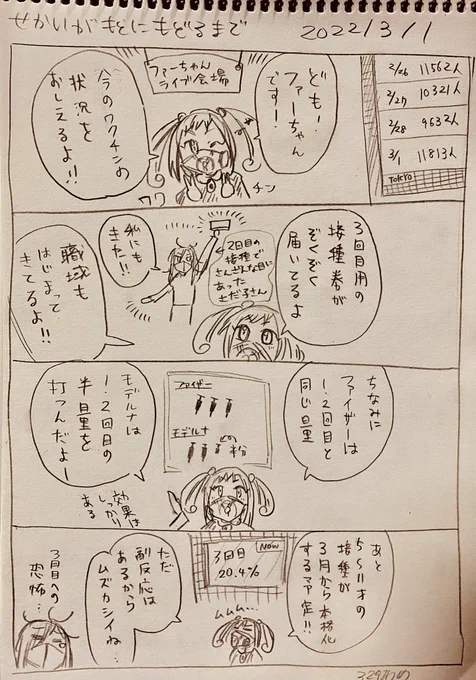 せかいがもとにもどるまで
2022/3/1
2/26 11562人
2/27 10321人
2/28 9632人
3/1 11813人
TOKYO
ファーちゃん
ライブ会場
ども!
ファーちゃん
です!
今のワクチンの
状況を
おしえるよ!!
ワク
チン
3回目用の
接種券が
ぞくぞく
届いてるよ
2回目の
接種で
さんざんな目に
あった
土だ子さん
私にも
きた!!
職域も
はじまって
きてるよ!!
ちなみに
ファイザーは
1.2回目と
同じ量
ファイザー
モデルナ
モデルナは
1.2回目の
半量を
打つんだよー
効果は
しっかり
ある
あと
5~11才の
接種が
3月から本格化
する予定!!
NOW
3回目
20.4%
ムムム…
ただ
副反応は
あるから
ムズカシイね…
3回目への
恐怖…